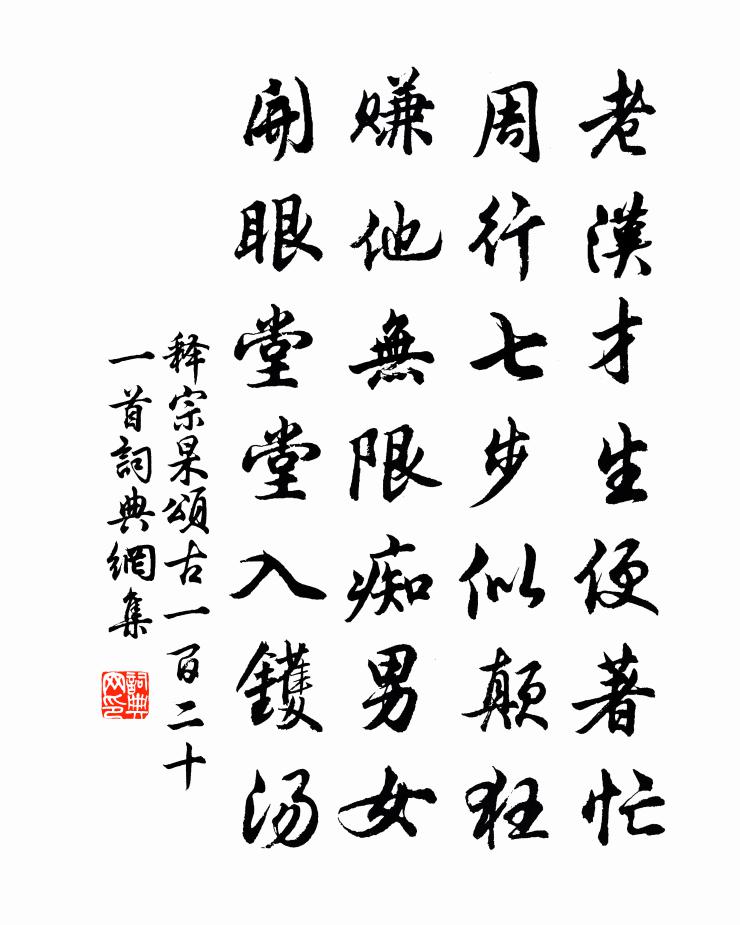 老漢才生便著忙
周行七步似顛狂
賺他無限痴男女
開眼堂堂入鑊湯
释宗杲頌古一百二十
一首詞典網集
詞典网印